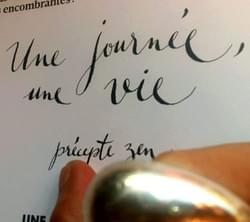 s encombrantes?
Une journée,
une vie
précepte zen
UNE